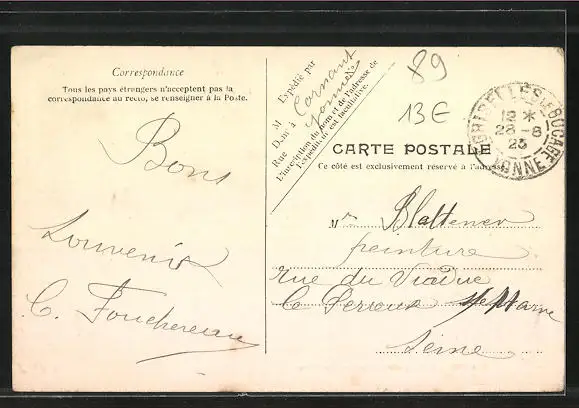 Correspondance
Tous les pays étrangers n'acceptent pas la
correspondance au recto, se renseigner à la Poste.
Bons
Souvenirs
C. Fouchereau
M Expédié par
Demt à
Rue
L'inscription du nom et de l'adresse de
l'expéditeur est facultative.
89
13€
CARTE POSTALE
Ce côté est exclusivement réservé à l'adresse
LES BOCAGE
12 *
28-8
23
YONNE
Mr Blattener
peinture
rue du Viaduc
Le Perreux
Seine